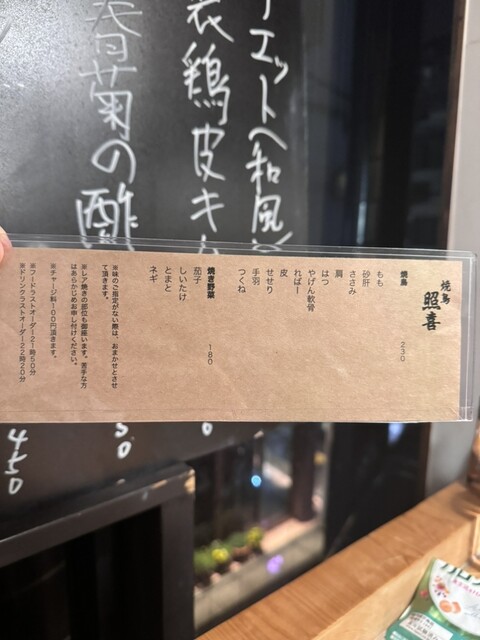 エットへ和風
鶏皮キ
春菊の酢
焼鳥
照喜
焼鳥 230
もも
砂肝
ささみ
肩
はつ
やげん軟骨
ればー
皮
せせり
手羽
つくね
焼き野菜 180
茄子
しいたけ
とまと
ネギ
※味のご指定がない際は、おまかせとさせ
て頂きます。
※レア焼きの部位も御座います。苦手な方
はあらかじめお申し付けください。
※チャージ料100円頂きます。
※フードラストオーダー21時50分
※ドリンクラストオーダー22時20分
450